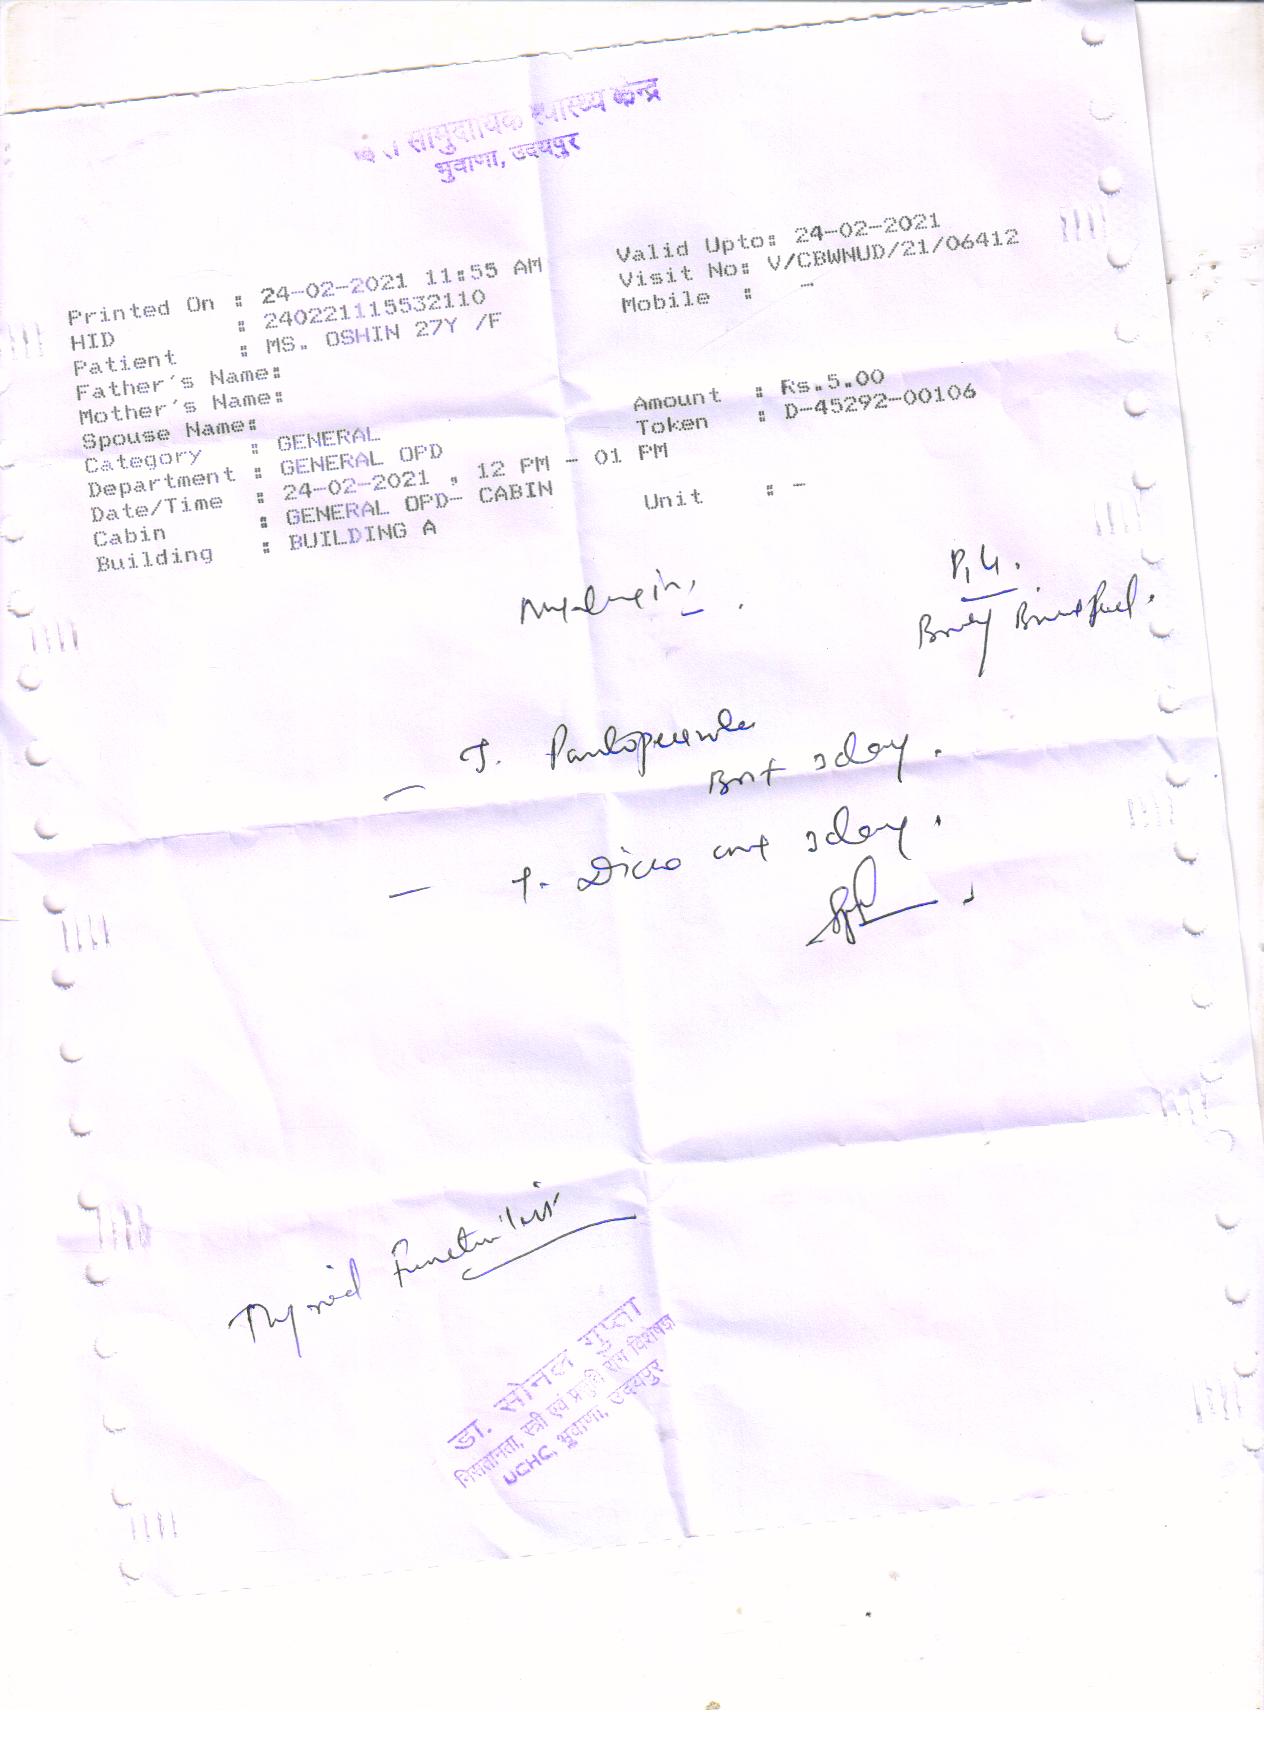 सामुदायिक स्वास्थ्य केन्द्र
भुवाणा, उदयपुर
Printed On : 24-02-2021 11:55 AM
Valid Upto: 24-02-2021
HID : 240221115532110
Visit No: V/CBWNUD/21/06412
Patient : MS. OSHIN 27Y /F
Mobile : -
Father's Name:
Mother's Name:
Spouse Name:
Amount : Rs.5.00
Category : GENERAL
Token : D-45292-00106
Department : GENERAL OPD
Date/Time : 24-02-2021 , 12 PM - 01 PM
Cabin : GENERAL OPD- CABIN
Unit : -
Building : BUILDING A
T.
3 day.
- T. Diclo 3 day.
Thyroid Function
डा. सोनल गुप्ता
निसंतानता, स्त्री एवं प्रसुति रोग विशेषज्ञ
UCHC, भुवाणा, उदयपुर